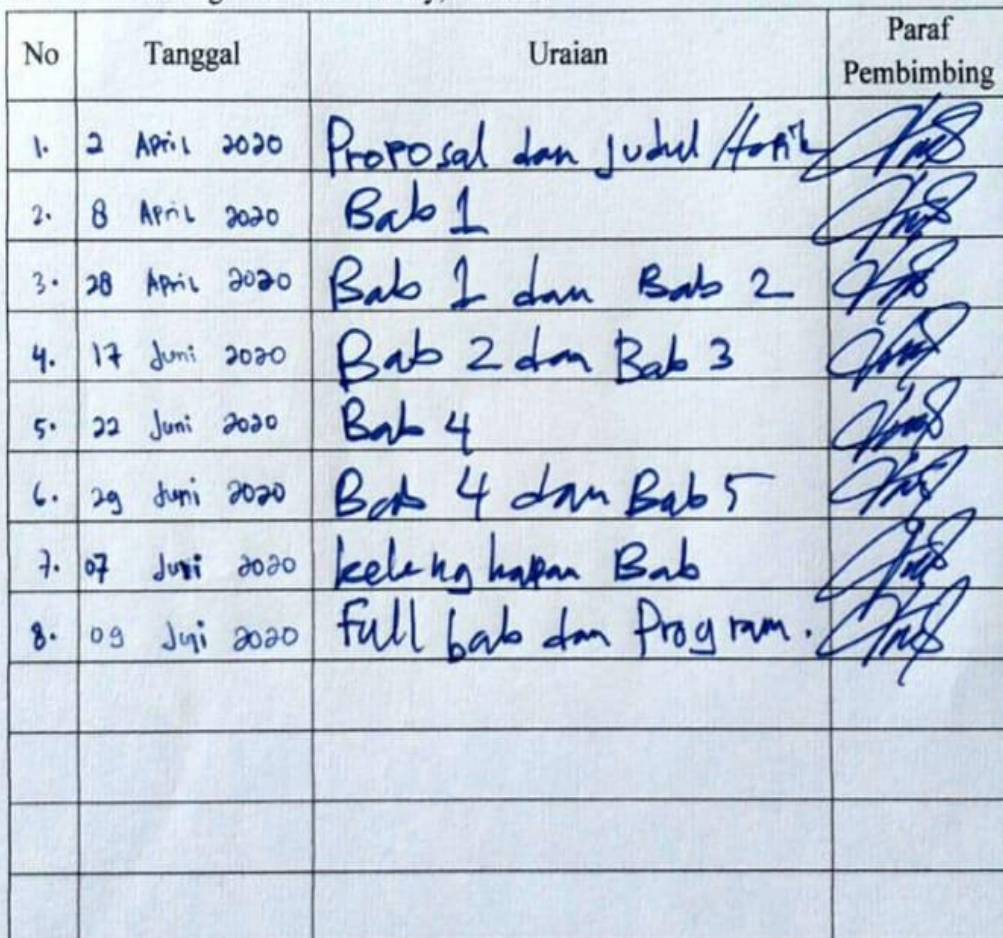 No Tanggal Uraian Paraf Pembimbing
1. 2 April 2020 Proposal dan judul /topik
2. 8 April 2020 Bab 1
3. 28 April 2020 Bab 1 dan Bab 2
4. 17 Juni 2020 Bab 2 dan Bab 3
5. 22 Juni 2020 Bab 4
6. 29 Juni 2020 Bab 4 dan Bab 5
7. 07 2020 kelengkapan Bab
8. 09 2020 Full bab dan Program.